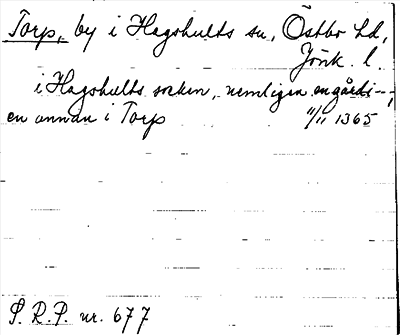 Torp, by i Hagshults sn, Östbo hd,
Jönk. l.
i Hagshults socken, nemligen en gård i --,
en annan i Torp 11/11 1365
S. R. P. nr. 677